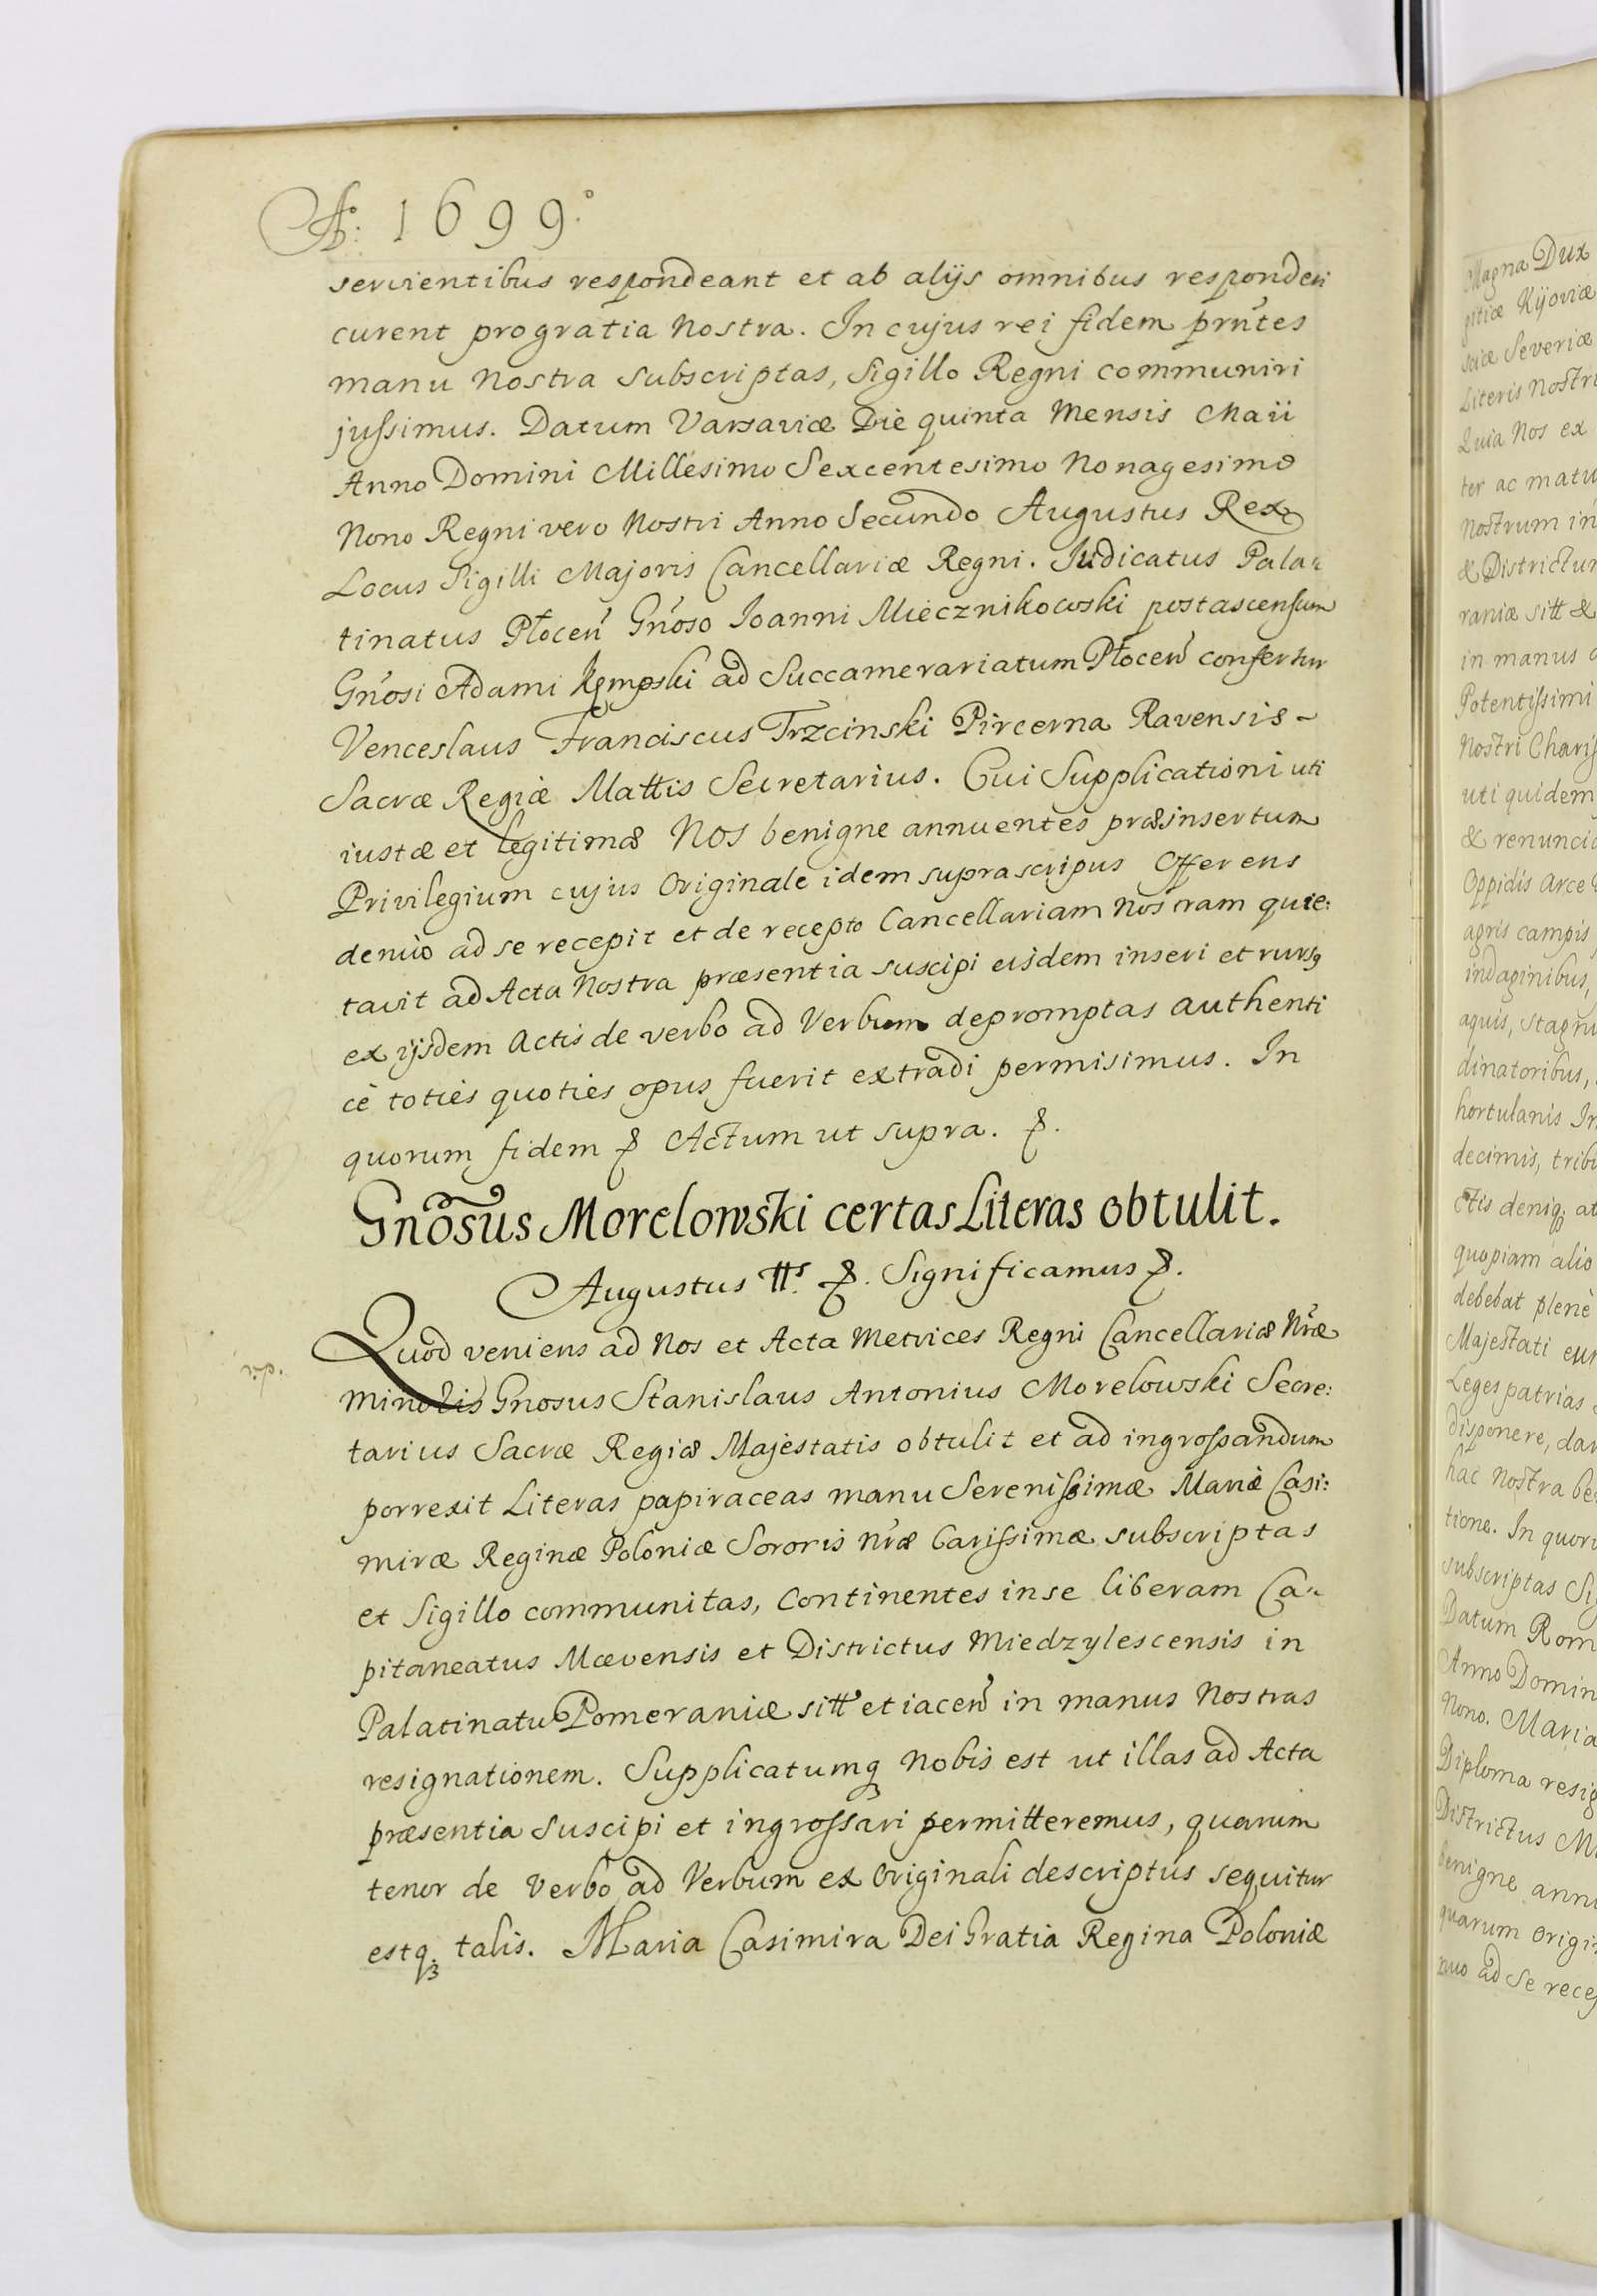 Aº: 1699º
servientibus respondeant et ab alijs omnibus responderi
curent pro gratia Nostra. In cujus rei fidem prńtes
manu Nostra subscriptas, Sigillo Regni communiri
jussimus. Datum Varsaviæ Die quinta Mensis Maii
Anno Domini Millesimo Sexcentesimo Nonagesimo
Nono Regni vero Nostri Anno Secundo Augustus Rex
Locus Sigilli Majoris Cancellariæ Regni. Iudicatus Pala-
tinatus Płoceń Gńoso Ioanni Miecznikowski post ascensum
Gńosi Adami Kęmpski ad Succamerariatum Płoceń confertur
Venceslaus Franciscus Trzcinski Pircerna Ravensis -
Sacræ Regiæ Mattis Secretarius. Cui Supplicationi uti
iustæ et legitimæ Nos benigne annuentes præinsertum
Privilegium cujus Originale idem suprascripus Offerens
denuò ad se recepit et de recepto Cancellariam Nostram quie:
tavit ad Acta Nostra præsentia suscipi eisdem inseri et rursq
ex ijsdem Actis de verbo ad Verbum depromptas authenti
cè toties quoties opus fuerit extradi permisimus. In
quorum fidem & Actum ut supra. &.
Gnosus Morelowski certas Literas obtulit.
Augustus IIs. &. Significamus &.
Quod veniens ad Nos et Acta Metrices Regni Cancellariæ Nræ
Minoris Gnosus Stanislaus Antonius Morelowski Secre:
tarius Sacræ Regiæ Majestatis obtulit et ad ingrossandum
porrexit Literas papiraceas manu Serenissimæ Mariæ Casi:
miræ Reginæ Poloniæ Sororis nræ Carissimæ subscriptas
et Sigillo communitas, Continentes in se liberam Ca-
pitaneatus Mævensis et Districtus Miedzylescensis in
Palatinatu Pomeraniæ sitt et iaceń in manus Nostras
resignationem. Supplicatumq Nobis est ut illas ad Acta
præsentia Suscipi et ingrossari permitteremus, quarum
tenor de Verbo ad Verbum ex Originali descriptus sequitur
estq talis. Maria Casimira Dei Gratia Regina Poloniæ
Magna Dux
Kijoviæ
Severiæ
Literis Nostri
Quia Nos ex
ter ac matu
Nostrum in
& Districtum
raniæ sitt &
in manus
Potentissimi
Nostri Chariss
uti quidem
& renuncia
Oppidis Arce
agris campis
indaginibus,
aquis, stagni
dinatoribus,
hortulanis In
decimis, tribu
ctis deniq; at
quopiam alio
debebat plenè
Majestati eun
Leges patrias
disponere, dar
hac Nostra be
tione. In quor
subscriptas Si
Datum Rom
Anno Domin
Nono. Maria
Diploma resig
Districtus Mi
benigne annu
quarum Origi
nuo ad Se rece